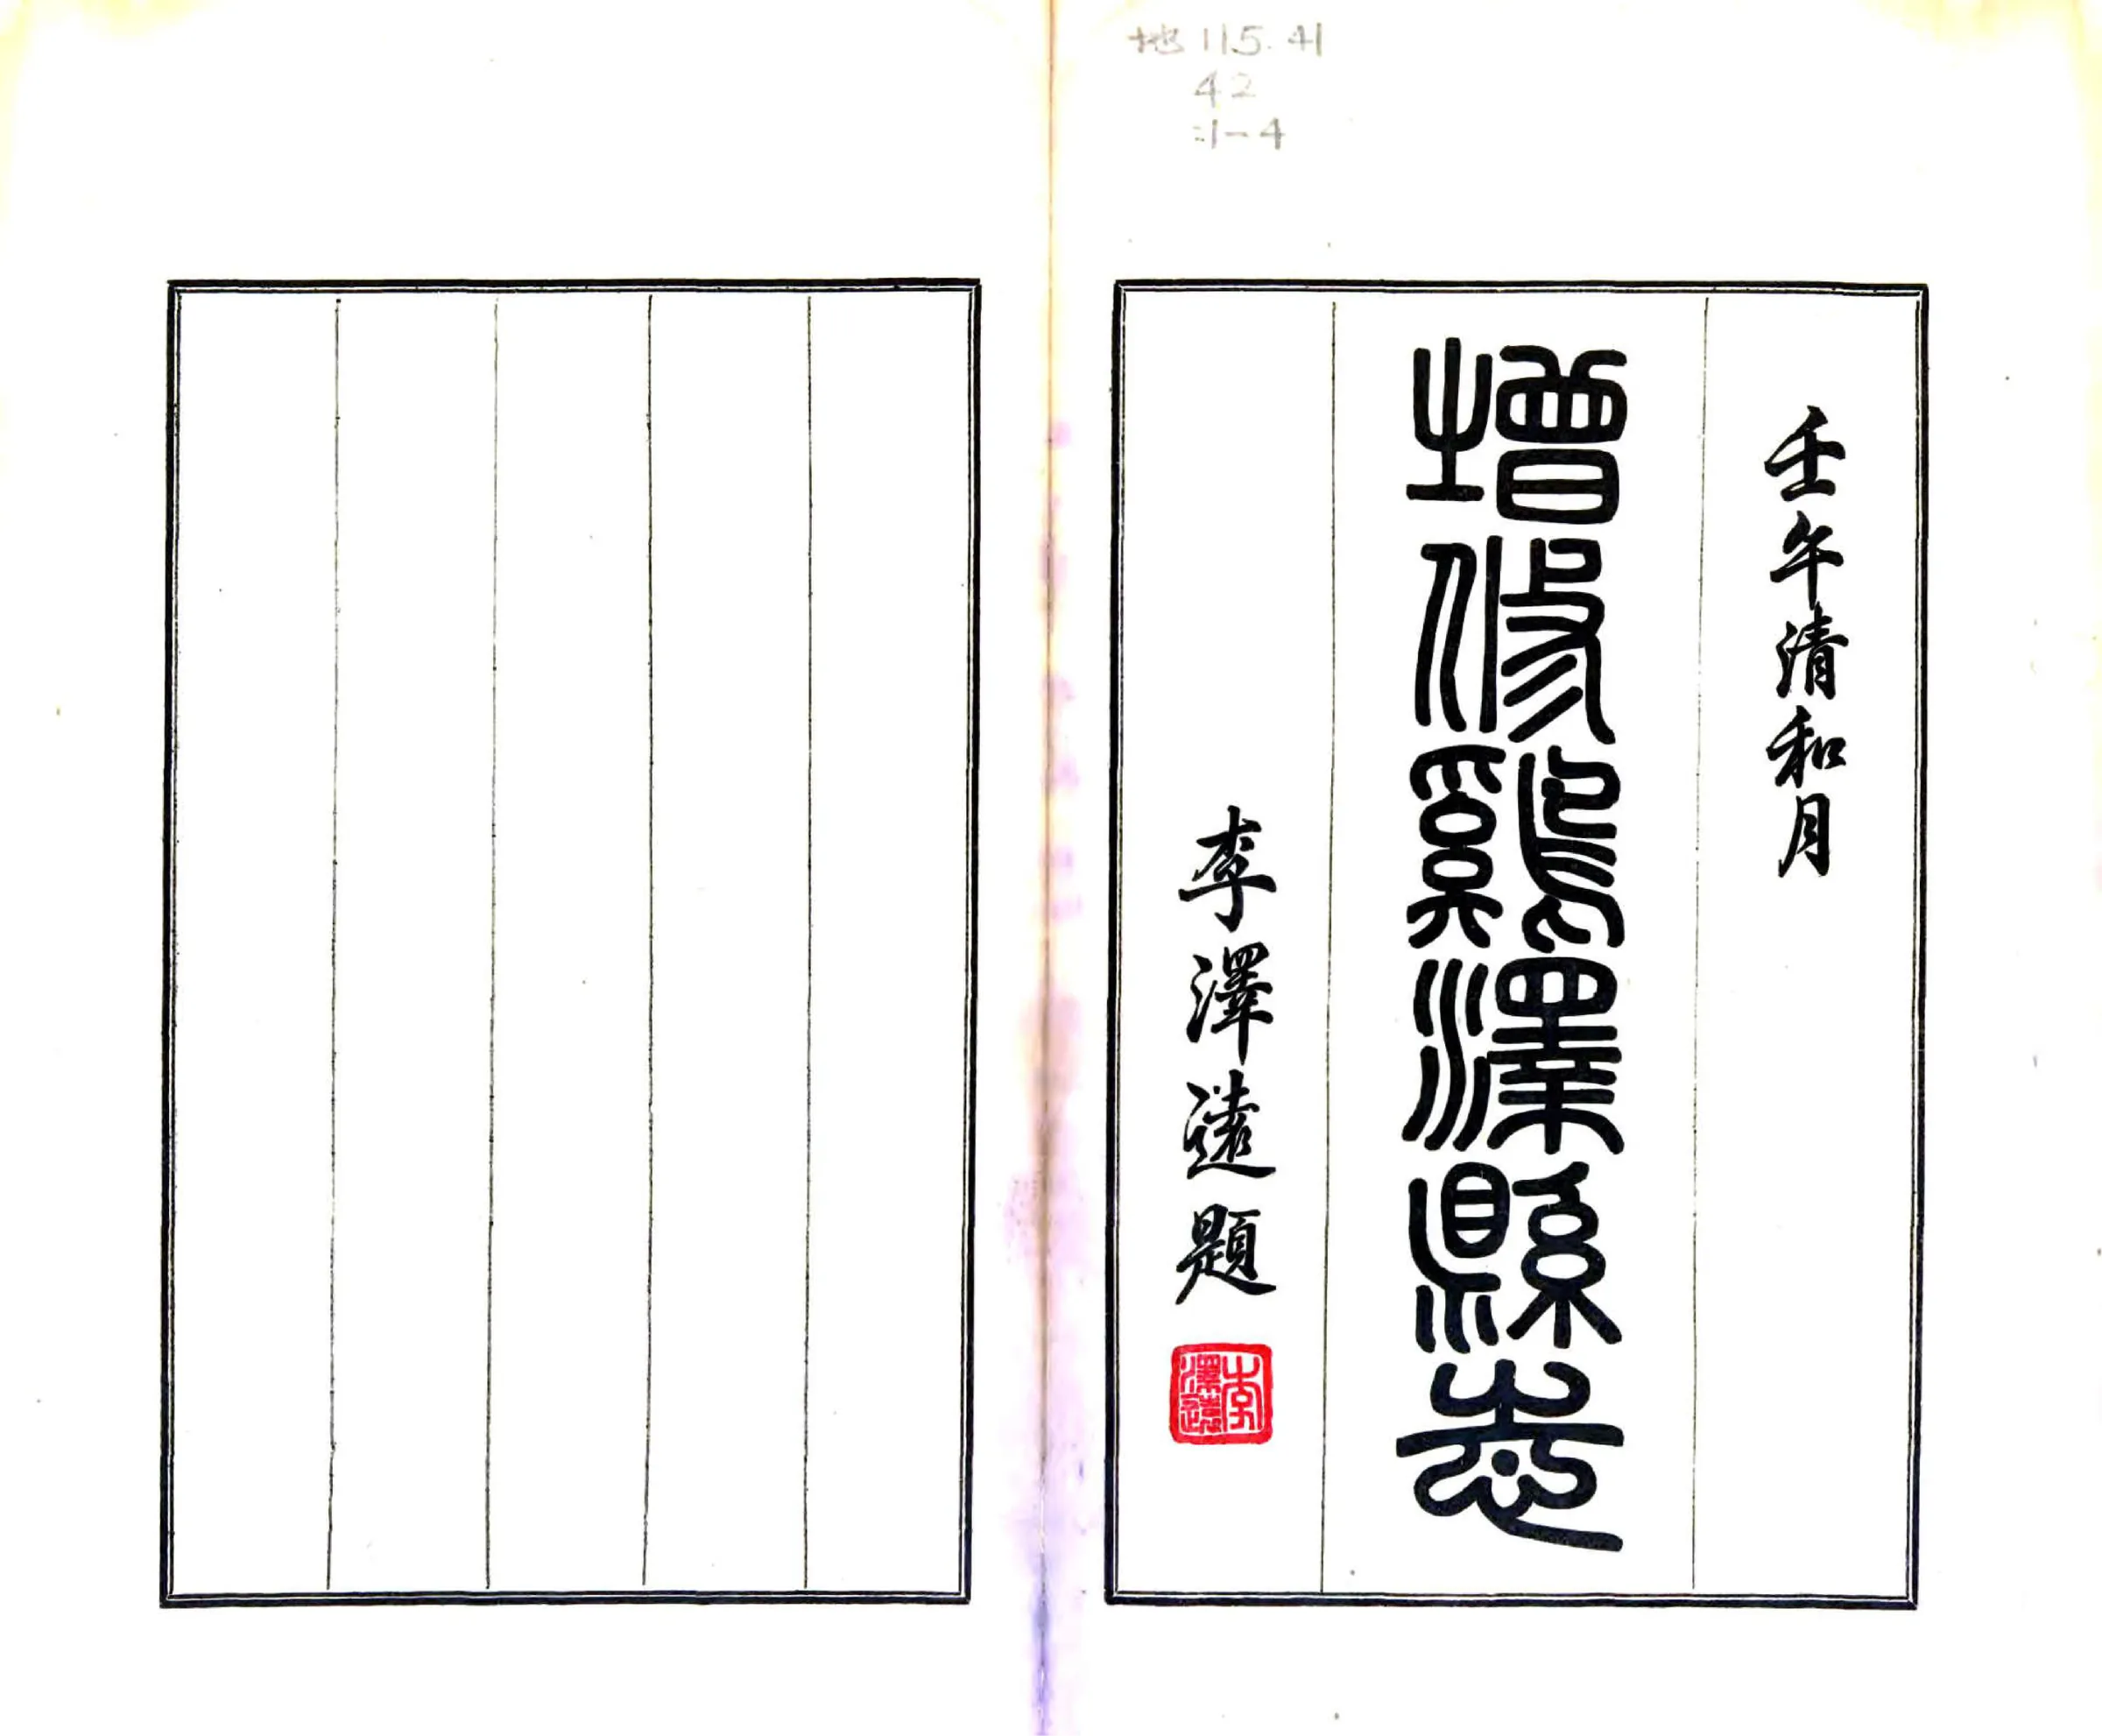 地 115.41
42
:1-4
壬午清和月
增修雞澤縣志
李澤遠題
李澤遠